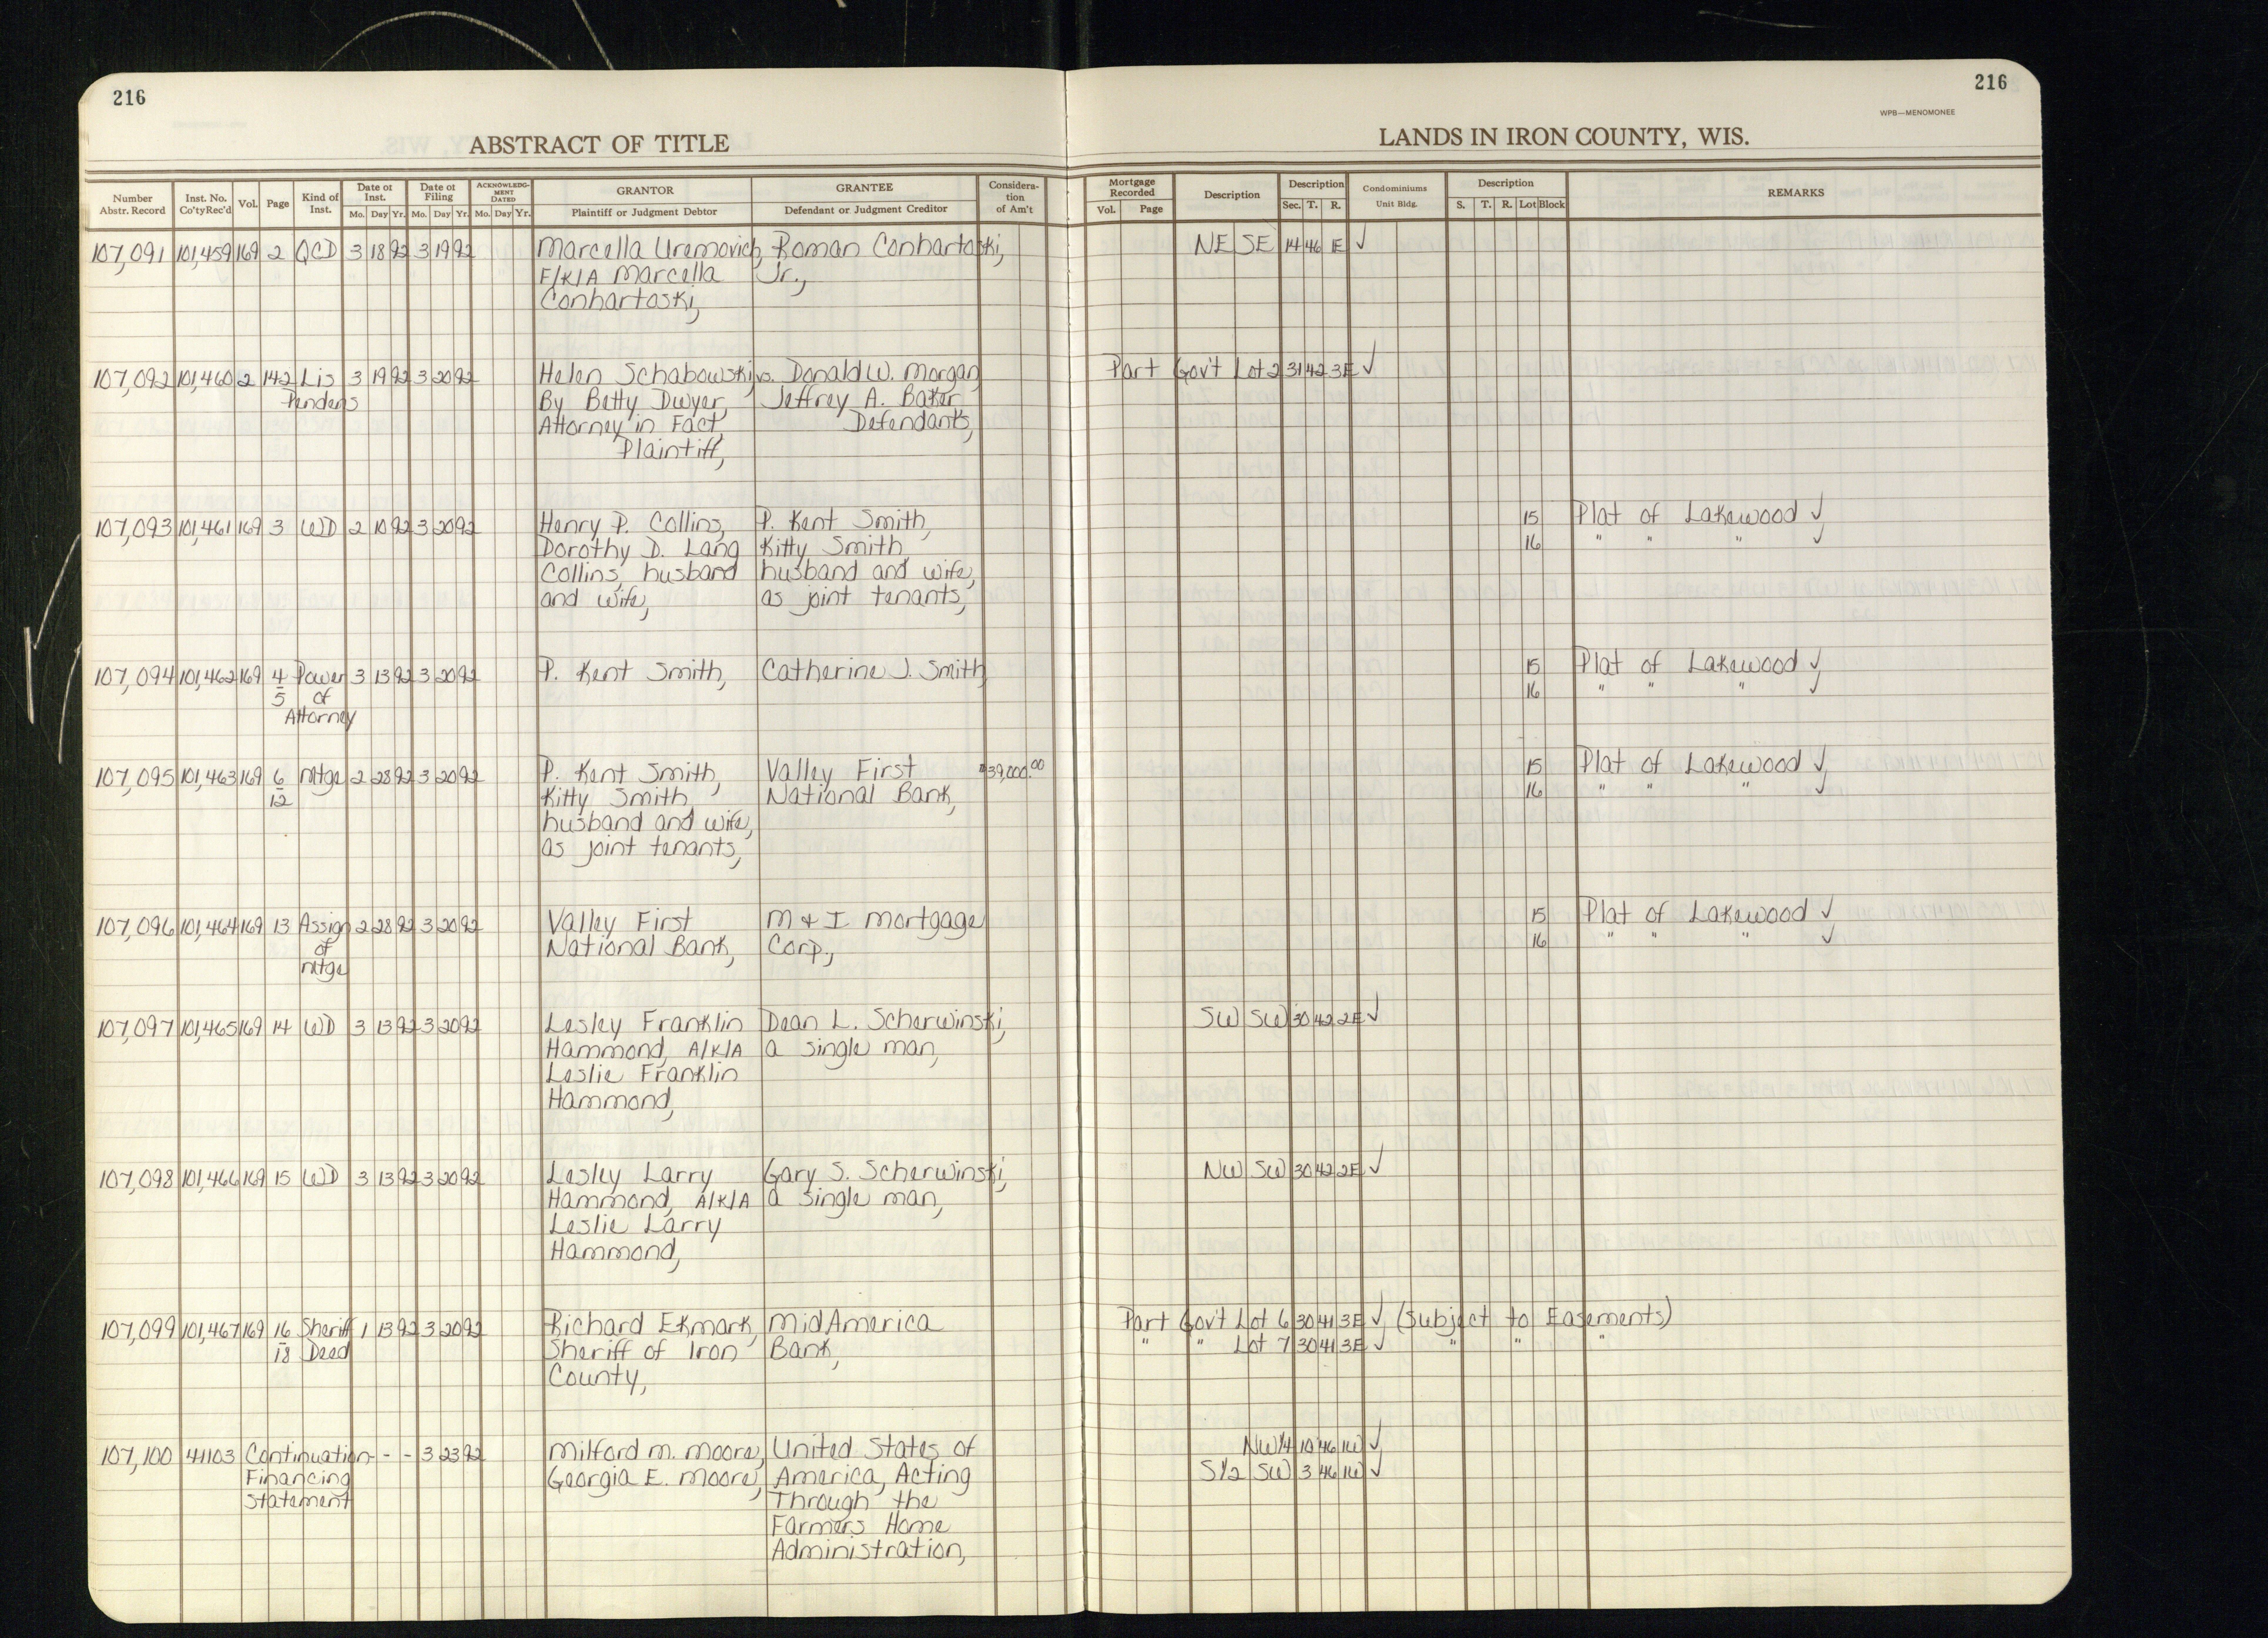 216
216
WPB—MENOMONEE
ABSTRACT OF TITLE
LANDS IN IRON COUNTY, WIS.
Number Abstr. Record
Inst. No. Co'ty Rec'd
Vol.
Page
Kind of Inst.
Date of Inst.
Mo. Day Yr.
Date of Filing
Mo. Day Yr.
ACKNOWLEDG-MENT DATED
Mo. Day Yr.
GRANTOR
Plaintiff or Judgment Debtor
GRANTEE
Defendant or Judgment Creditor
Considera-tion of Am't
Mortgage Recorded
Vol. Page
Description
Description
Sec. T. R.
Condominiums
Unit Bldg.
Description
S. T. R. Lot Block
REMARKS
107,091 101,459 169 2 QCD 3 18 92 3 19 92 Marcella Uremovich, Roman Conhartoski, NE SE 14 46 1E ✓
F/K/A Marcella Jr.,
Conhartoski,
107,092 101,460 2 142 Lis 3 19 92 3 20 92 Helen Schabowski vs. Donald W. Morgan Part Gov't Lot 2 31 42 3E ✓
Pendens By Betty Dwyer, Jeffrey A. Baker
Attorney in Fact, Defendants,
Plaintiff,
107,093 101,461 169 3 WD 2 10 92 3 20 92 Henry P. Collins, P. Kent Smith, 15 Plat of Lakewood ✓
Dorothy D. Lang Kitty Smith, 16 " " " ✓
Collins, husband husband and wife,
and wife, as joint tenants,
107,094 101,462 169 4 Power 3 13 92 3 20 92 P. Kent Smith, Catherine J. Smith, 15 Plat of Lakewood ✓
5 of 16 " " " ✓
Attorney
107,095 101,463 169 6 Mtge 2 28 92 3 20 92 P. Kent Smith, Valley First $39,000.00 15 Plat of Lakewood ✓
12 Kitty Smith, National Bank, 16 " " " ✓
husband and wife,
as joint tenants,
107,096 101,464 169 13 Assign 2 28 92 3 20 92 Valley First M & I Mortgage 15 Plat of Lakewood ✓
of National Bank, Corp., 16 " " " ✓
Mtge
107,097 101,465 169 14 WD 3 13 92 3 20 92 Lesley Franklin Dean L. Scherwinski, SW SW 30 42 2E ✓
Hammond, A/K/A a single man,
Leslie Franklin
Hammond,
107,098 101,466 169 15 WD 3 13 92 3 20 92 Lesley Larry Gary S. Scherwinski, NW SW 30 42 2E ✓
Hammond, A/K/A a single man,
Leslie Larry
Hammond,
107,099 101,467 169 16 Sheriff 1 13 92 3 20 92 Richard Ekmark, MidAmerica Part Gov't Lot 6 30 41 3E ✓ (Subject to Easements)
18 Deed Sheriff of Iron Bank, " " Lot 7 30 41 3E ✓ " " "
County,
107,100 41103 Continuation - - - 3 23 92 Milford M. Moore, United States of NW¼ 10 46 1W ✓
Financing Georgia E. Moore, America, Acting S½ SW 3 46 1W ✓
Statement Through the
Farmers Home
Administration,